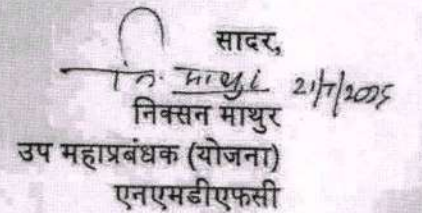 सादर,
नि. माथुर 21/7/2025
निक्सन माथुर
उप महाप्रबंधक (योजना)
एनएमडीएफसी